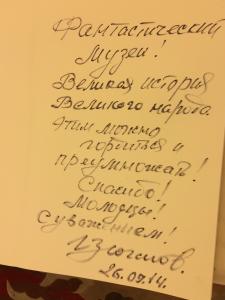 Фантастический
музей!
Великая история
Великого народа.
Этим можно
гордиться и
преумножать!
Спасибо!
Молодцы!
С уважением!
26.09.14.